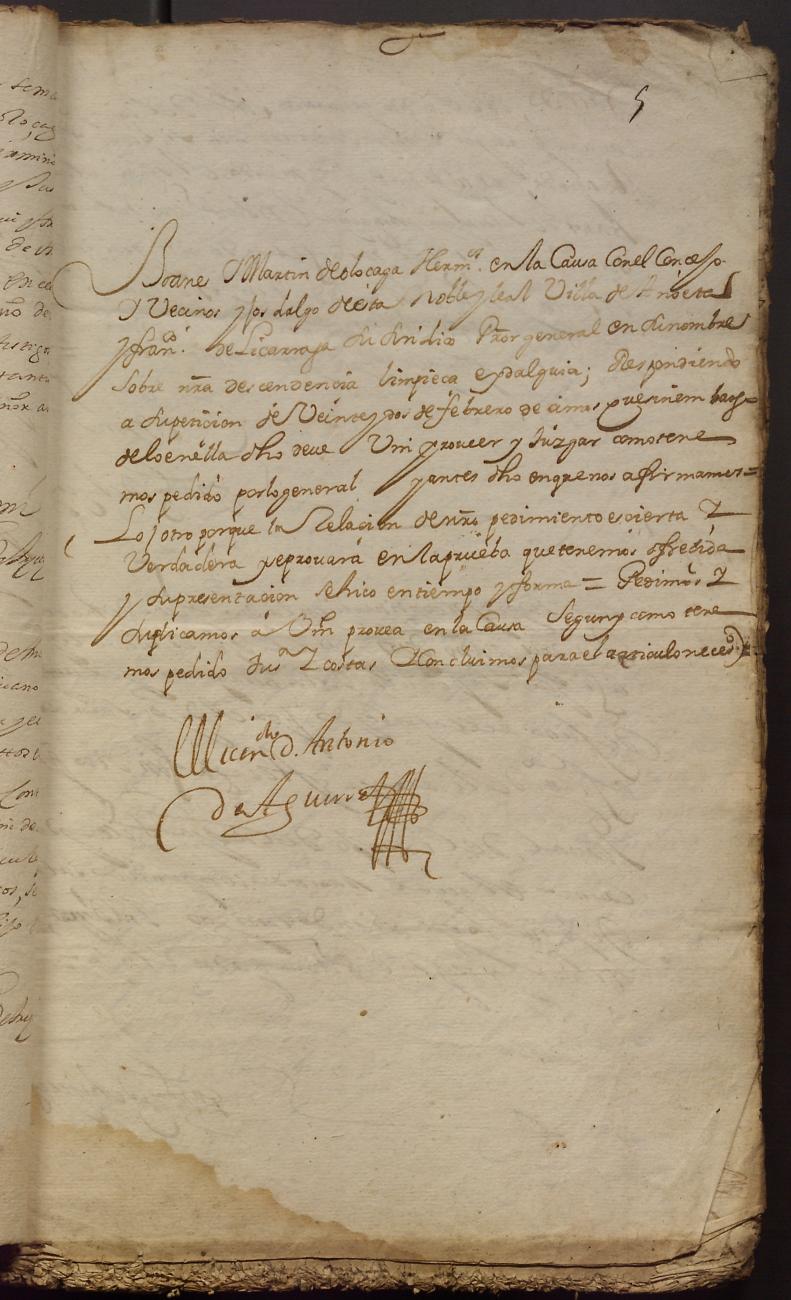 5
Joanes y Martin de olocaga Herm.os en la Causa Con el Concejo
y Vecinos yjos dalgo de esta Noble y leal Villa de Anoeta
y fran.co de Licarraga su sindico Pror general en su nombre
sobre nra descendencia limpieca e ydalguia; Respondiendo
a su peticion de Veinte y dos de febrero de este año que sin embargo
de lo en ella dho deve Vm proveer y Juzgar como tene
mos pedido por lo general y antes dho en que nos afirmamos =
Lo otro porque la Relacion de nro pedimiento es cierta y
Verdadera y se provará en la prueba que tenemos ofrecida
y su presentacion se hico en tiempo y forma = Pedimos y
suplicamos á Vm provea en la Causa Segun y como tene
mos pedido Jus.a y costas Concluimos para el articulo neces.o
Licen.do D. Antonio
de Aguirre